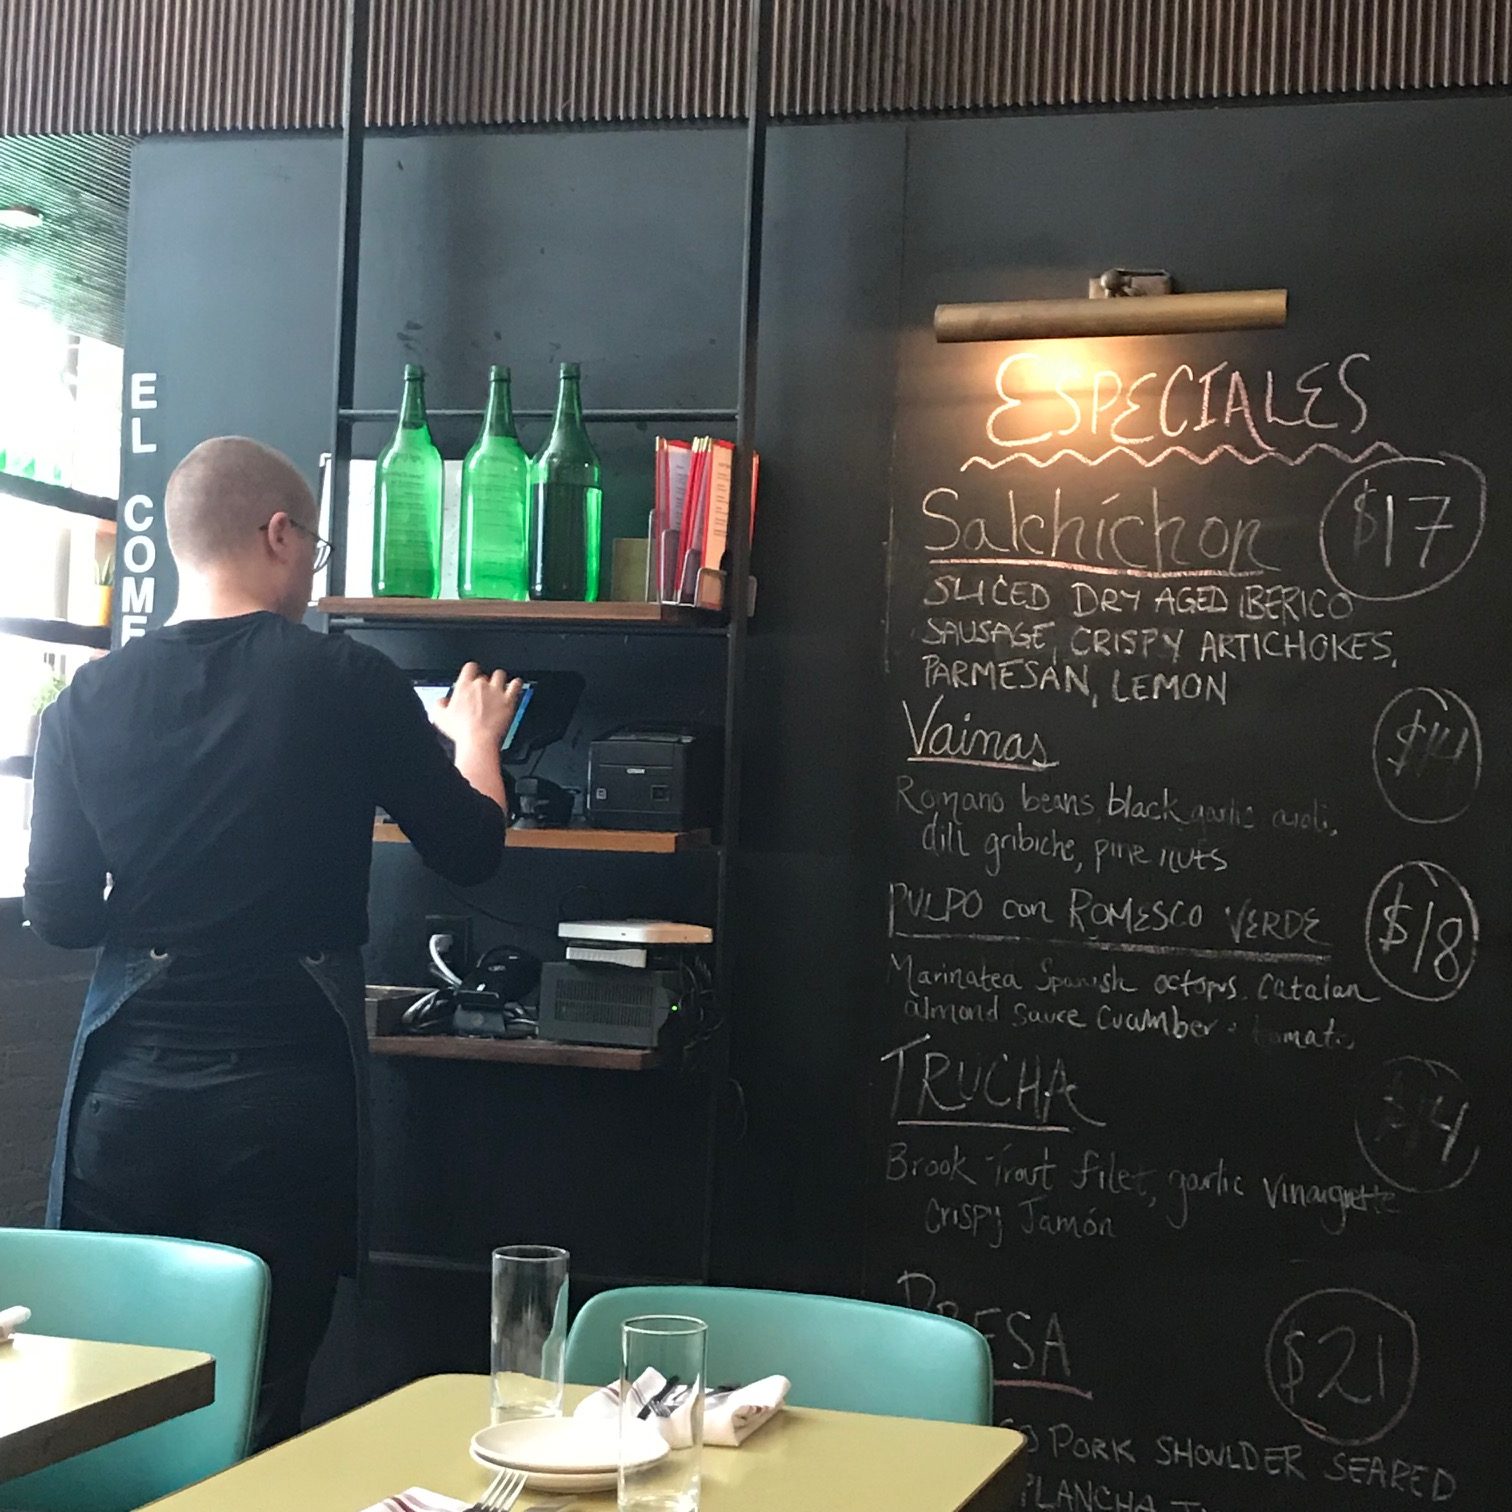 EL COME
ESPECIALES
Salchichon $17
SLICED DRY AGED IBERICO
SAUSAGE, CRISPY ARTICHOKES,
PARMESAN, LEMON
Vainas $14
Romano beans, black garlic aioli,
dill gribiche, pine nuts
PULPO con ROMESCO VERDE $18
Marinatea Spanish octopus. Catalan
almond sauce cucumber + tomato
TRUCHA $14
Brook Trout filet, garlic vinaigrette
Crispy Jamón
PRESA $21
PORK SHOULDER SEARED
PLANCHA